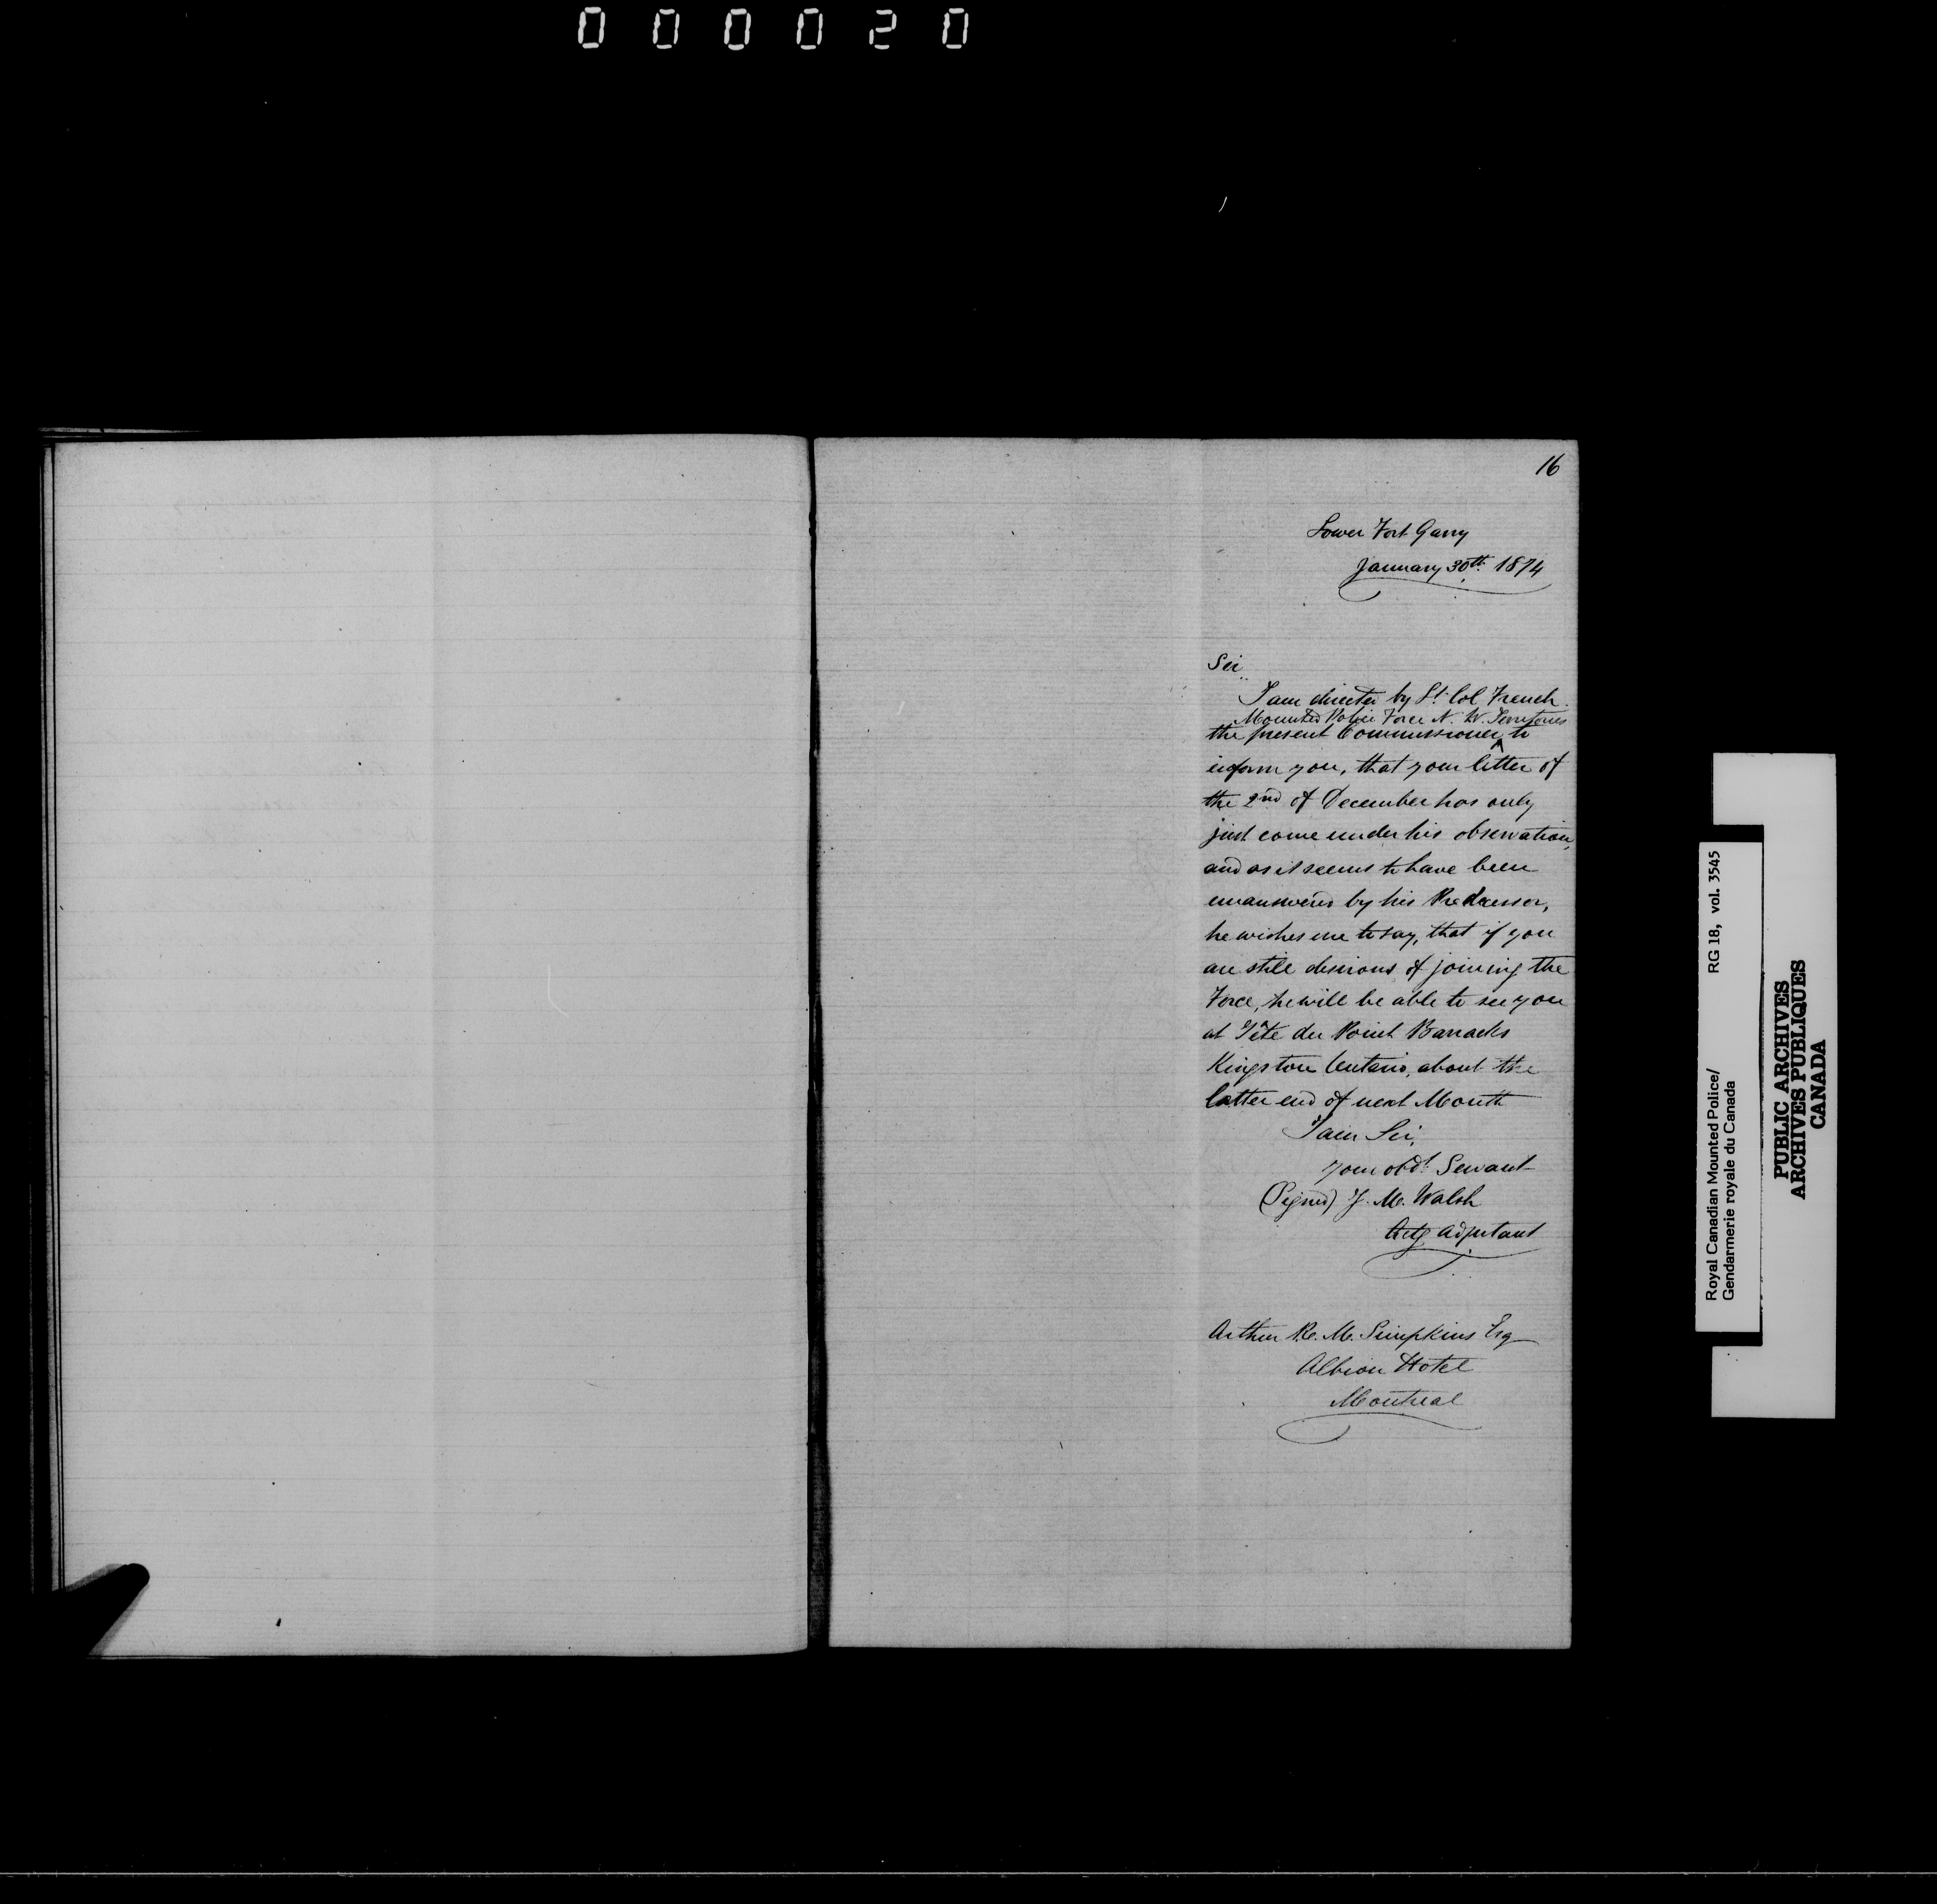 000020
16
Lower Fort Garry
January 30th 1874
Sir
I am directed by Lt. Col French
Mounted Police Force N. W. Territories
the present Commissioner ^ to
inform you, that your letter of
the 2nd of December has only
just come under his observation,
and as it seems to have been
unanswered by his Predecessor,
he wishes me to say, that if you
are still desirous of joining the
Force, he will be able to see you
at Tête du Point Barracks
Kingston Ontario, about the
latter end of next Month
I am Sir,
your obdt Servant
(Signed) J. M. Walsh
Actg Adjutant
Arthur R. M. Simpkins Esq
Albion Hotel
Montreal
Royal Canadian Mounted Police/ RG 18, vol. 3545
Gendarmerie royale du Canada
PUBLIC ARCHIVES
ARCHIVES PUBLIQUES
CANADA